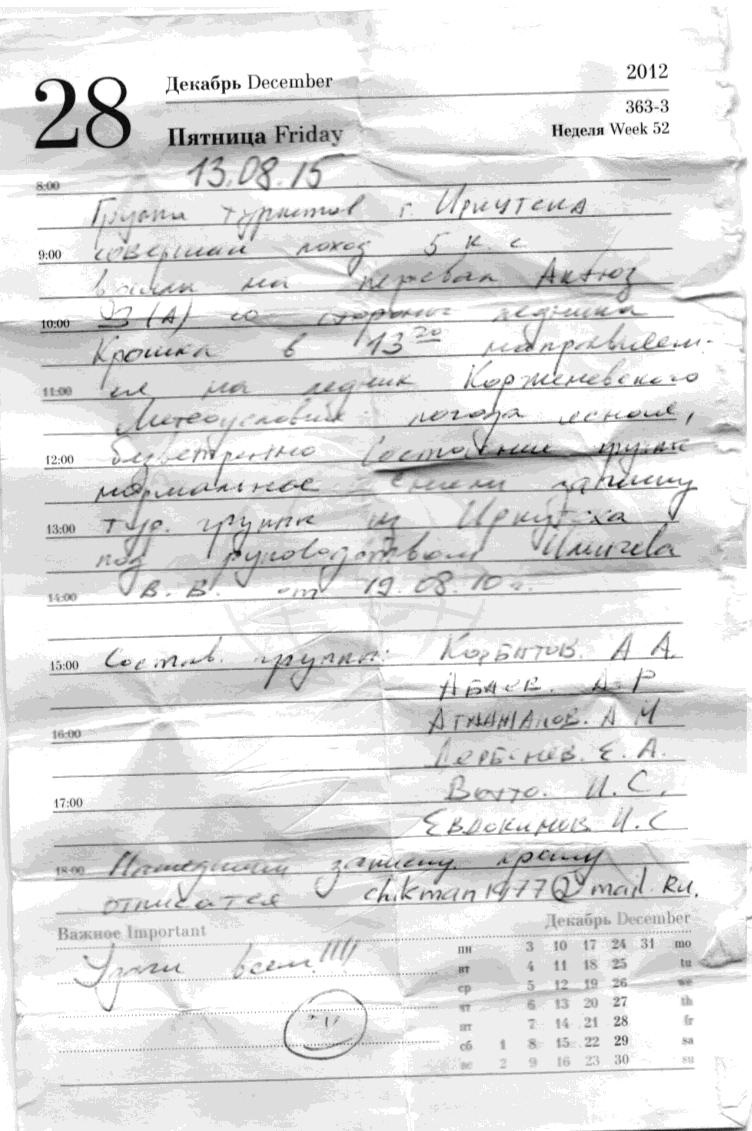 28
Декабрь December
2012
Пятница Friday
363-3
Неделя Week 52
13.08.15
8:00
Группа туристов г. Иркутска
9:00
совершая поход 5 к. с.
вышли на перевал Актюз
10:00
(А) со стороны ледника
Крошка в 13 20 направляем-
11:00
ся на ледник Корженевского
Метеоусловия: погода ясная,
12:00
безветренно Состояние группы
нормальное Сняли записку
13:00
тур. группы из Иркутска
под руководством
14:00
В. В. от 19.08.10 г.
15:00
Состав группы: А А.
А. Р
16:00
А М
Е. А.
17:00
И. С.
Евдокимов И. С
18:00
Нашедшим записку прошу
отписатся chikman1977@mail.Ru.
Важное Important
Декабрь December
Удачи всем!!!!
пн 3 10 17 24 31 mo
вт 4 11 18 25 tu
ср 5 12 19 26 we
чт 6 13 20 27 th
пт 7 14 21 28 fr
сб 1 8 15 22 29 sa
вс 2 9 16 23 30 su